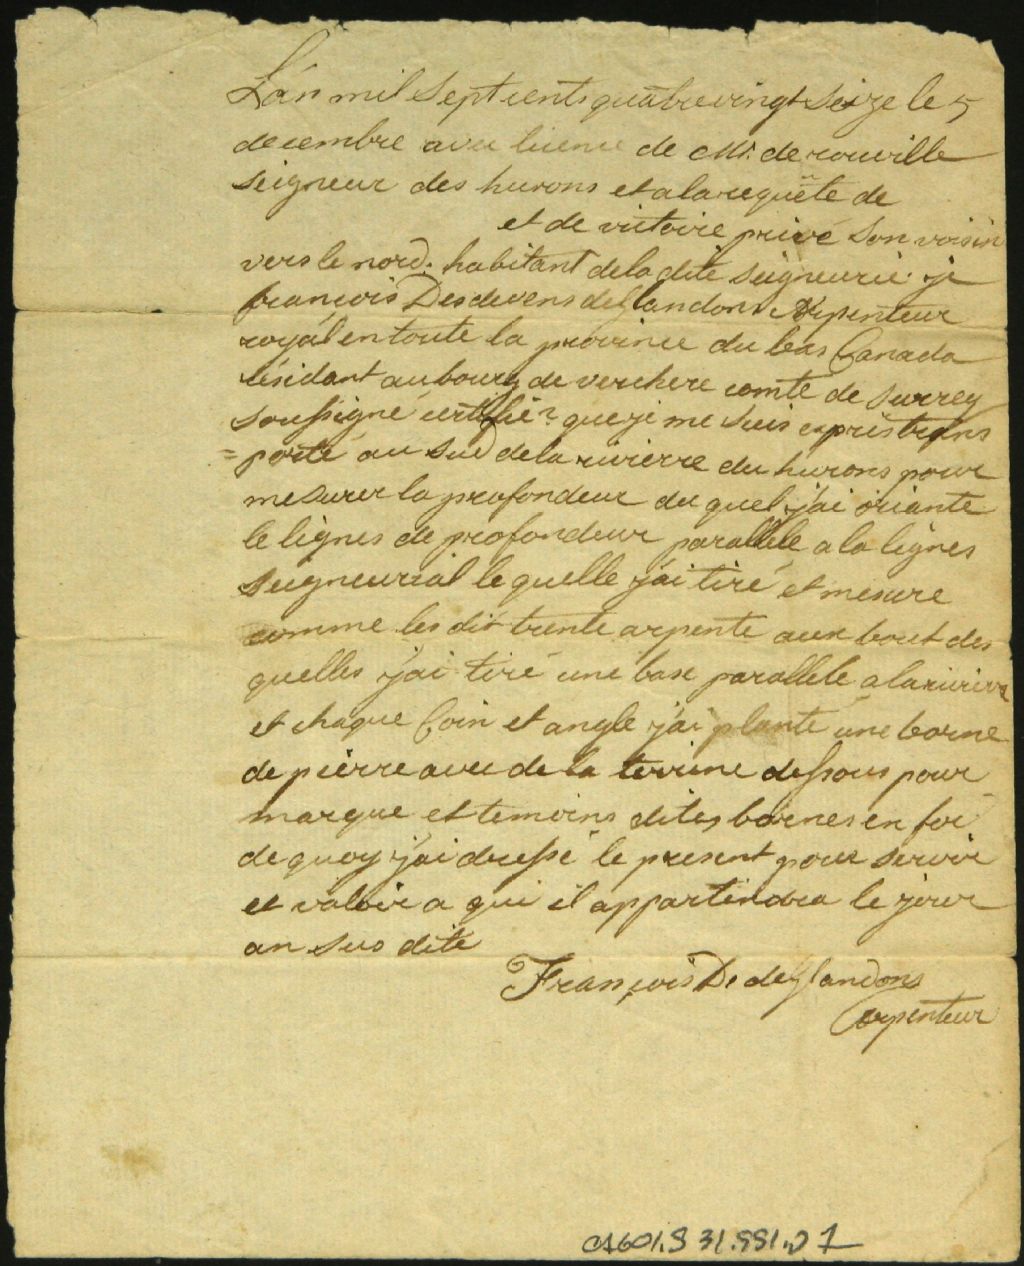 L'an mil Sept cents quatre vingt seize le 5
decembre avec licence de Mr. de rouville
seigneur des hurons et a la requête de
et de victoire privé son voisin
vers le nord. habitant de la dite seigneurie je
françois Desdevens desglandons Arpenteur
royal en toute la province du bas Canada
résidant au bourg de verchere comté de surrey
soussigné certifie que je me suis exprès trans
=porté au sud de la rivierre du hurons pour
mesurer la profondeur du quel j'ai oriante
le lignes de profondeur parallele a la lignes
seigneurial le quelle j'ai tiré et mesure
comme les dit trente arpente aux bout des
quelles j'ai tiré une base parallele a la rivierre
et chaque Coin et angle j'ai planté une borne
de pierre avec de la terrine dessous pour
marque et temoins dites bornes en foi
de quoy j'ai dressé le present pour servir
et valoir a qui il appartiendra le jour
an sus dite
François D. desglandons
Arpenteur
CA601.S31.SS1.D1